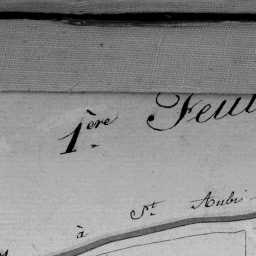 1ère Feui
à St Aubi